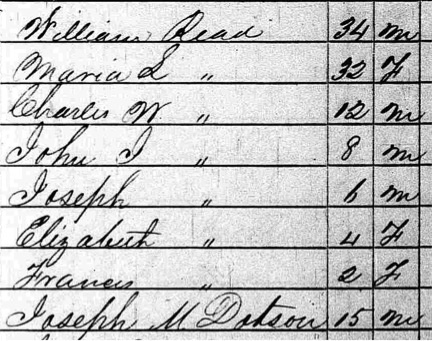 William Read 34 m
Maria L " 32 F
Charles W " 12 m
John I " 8 m
Joseph " 6 m
Elizabeth " 4 F
Francis " 2 F
Joseph M Dotson 15 m